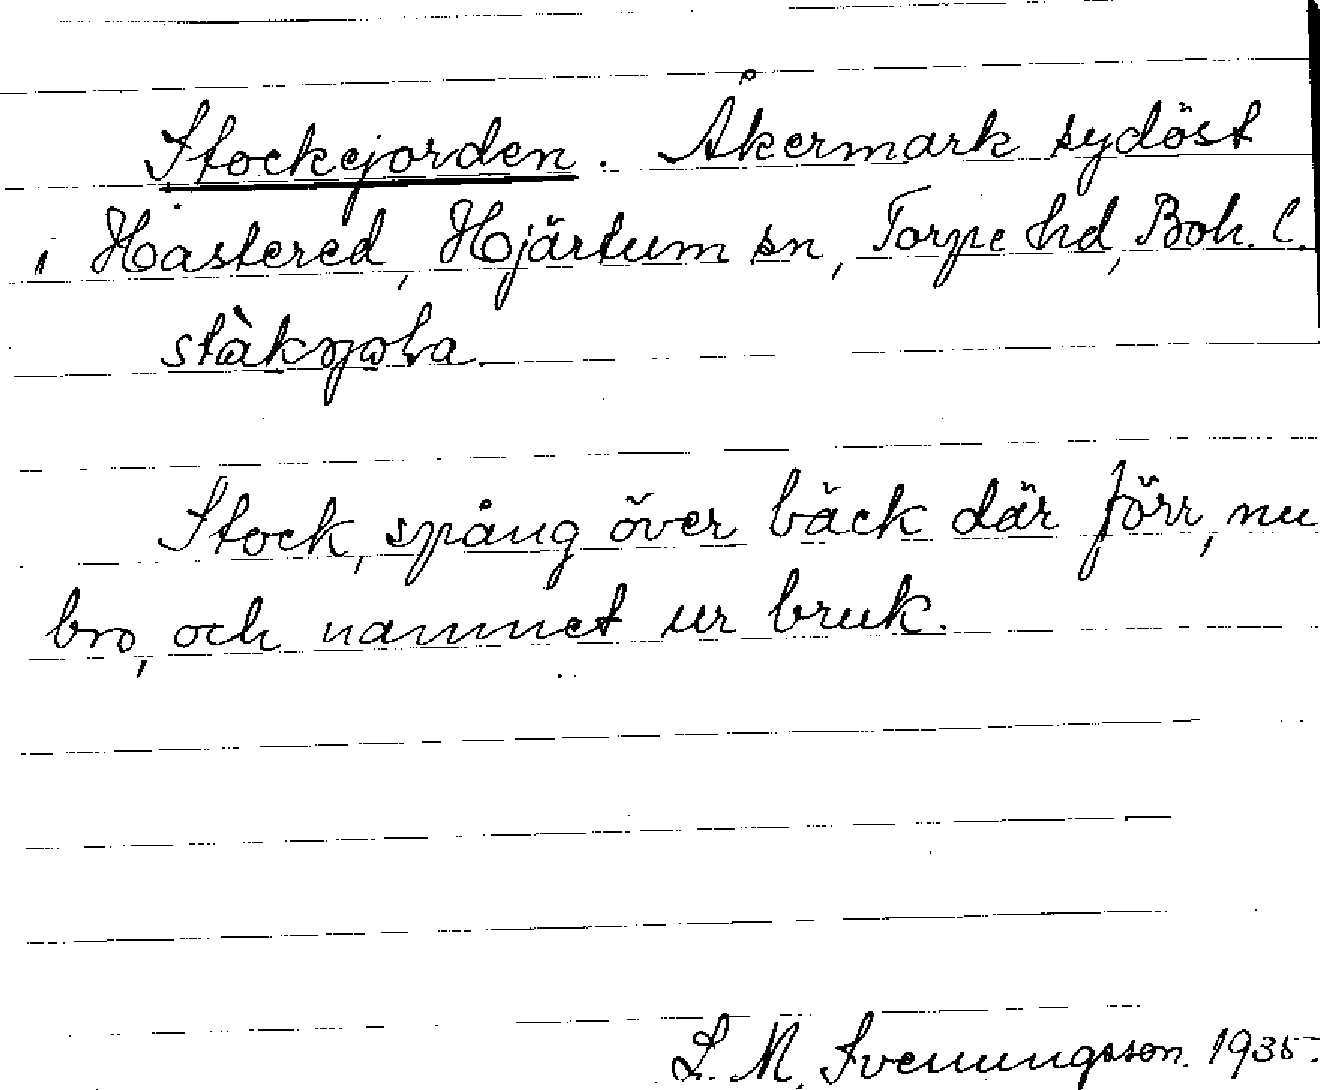 Stockejorden. Åkermark sydöst
i Hastered, Hjärtum sn, Torpe hd, Boh. l.
Stock, spång över bäck där förr, nu
bro, och namnet ur bruk.
L. M. Svenungsson. 1935.